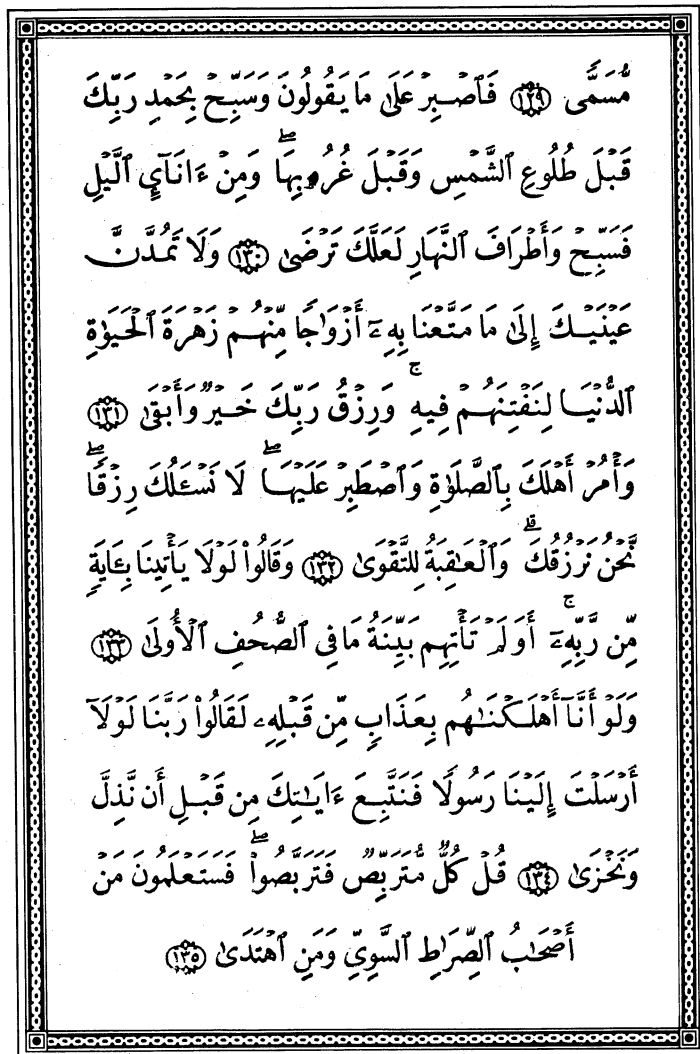 مُّسَمًّى ١٢٩ فَٱصْبِرْ عَلَىٰ مَا يَقُولُونَ وَسَبِّحْ بِحَمْدِ رَبِّكَ
قَبْلَ طُلُوعِ ٱلشَّمْسِ وَقَبْلَ غُرُوبِهَا ۖ وَمِنْ ءَانَآئِ ٱلَّيْلِ
فَسَبِّحْ وَأَطْرَافَ ٱلنَّهَارِ لَعَلَّكَ تَرْضَىٰ ١٣٠ وَلَا تَمُدَّنَّ
عَيْنَيْكَ إِلَىٰ مَا مَتَّعْنَا بِهِۦٓ أَزْوَٰجًا مِّنْهُمْ زَهْرَةَ ٱلْحَيَوٰةِ
ٱلدُّنْيَا لِنَفْتِنَهُمْ فِيهِ ۚ وَرِزْقُ رَبِّكَ خَيْرٌ وَأَبْقَىٰ ١٣١
وَأْمُرْ أَهْلَكَ بِٱلصَّلَوٰةِ وَٱصْطَبِرْ عَلَيْهَا ۖ لَا نَسْـَٔلُكَ رِزْقًا ۖ
نَّحْنُ نَرْزُقُكَ ۗ وَٱلْعَٰقِبَةُ لِلتَّقْوَىٰ ١٣٢ وَقَالُوا۟ لَوْلَا يَأْتِينَا بِـَٔايَةٍ
مِّن رَّبِّهِۦٓ ۚ أَوَلَمْ تَأْتِهِم بَيِّنَةُ مَا فِى ٱلصُّحُفِ ٱلْأُولَىٰ ١٣٣
وَلَوْ أَنَّآ أَهْلَكْنَٰهُم بِعَذَابٍ مِّن قَبْلِهِۦ لَقَالُوا۟ رَبَّنَا لَوْلَآ
أَرْسَلْتَ إِلَيْنَا رَسُولًا فَنَتَّبِعَ ءَايَٰتِكَ مِن قَبْلِ أَن نَّذِلَّ
وَنَخْزَىٰ ١٣٤ قُلْ كُلٌّ مُّتَرَبِّصٌ فَتَرَبَّصُوا۟ ۖ فَسَتَعْلَمُونَ مَنْ
أَصْحَٰبُ ٱلصِّرَٰطِ ٱلسَّوِىِّ وَمَنِ ٱهْتَدَىٰ ١٣٥